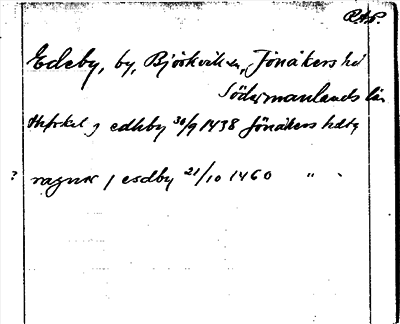 R.A.P.
Edeby, by, Björkvik sn, Jönåkers hd
Södermanlands län
j edhby 30/9 1438 Jönåkers hdtg
? ragnar j esdby 21/10 1460 " "